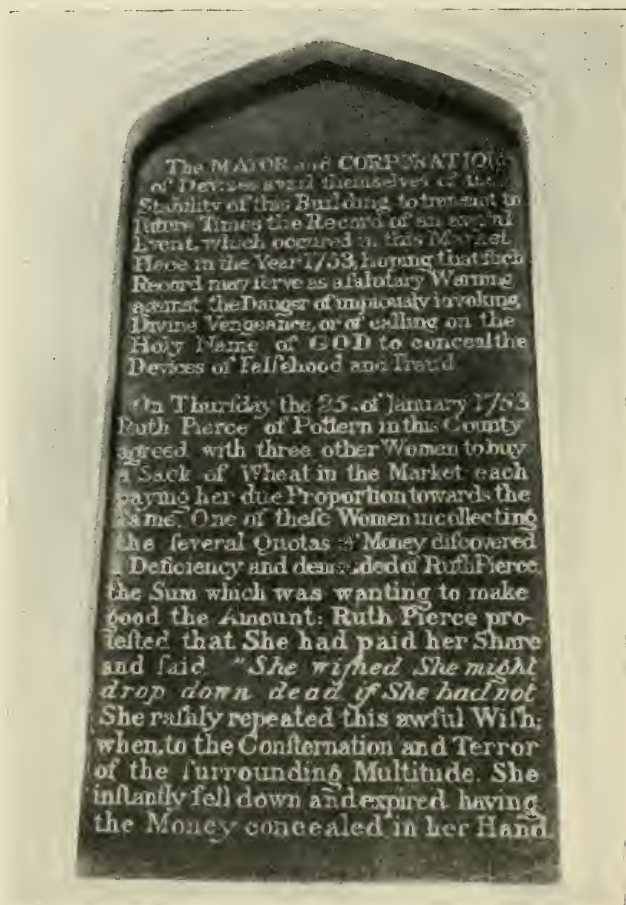 The MAYOR and CORPORATION
of Devizes avail themselves of the
Stability of this Building to transmit to
future Times the Record of an awful
Event, which occured in this Market
Place in the Year 1753, hoping that ſuch
Record may ſerve as a ſalutary Warning
against the Danger of impiously invoking
Divine Vengeance, or of calling on the
Holy Name of GOD to conceal the
Devices of Falſehood and Fraud
On Thurſday the 25. of January 1753
Ruth Pierce of Pottern in this County
agreed with three other Women to buy
a Sack of Wheat in the Market each
paying her due Proportion towards the
ſame. One of theſe Women in collecting
the ſeveral Quotas of Money diſcovered
a Deficiency and demanded of Ruth Pierce,
the Sum which was wanting to make
good the Amount: Ruth Pierce pro-
teſted that She had paid her Share
and ſaid "She wiſhed She might
drop down dead if She had not
She raſhly repeated this awful Wiſh;
when, to the Conſternation and Terror
of the ſurrounding Multitude. She
inſtantly fell down and expired having
the Money concealed in her Hand.